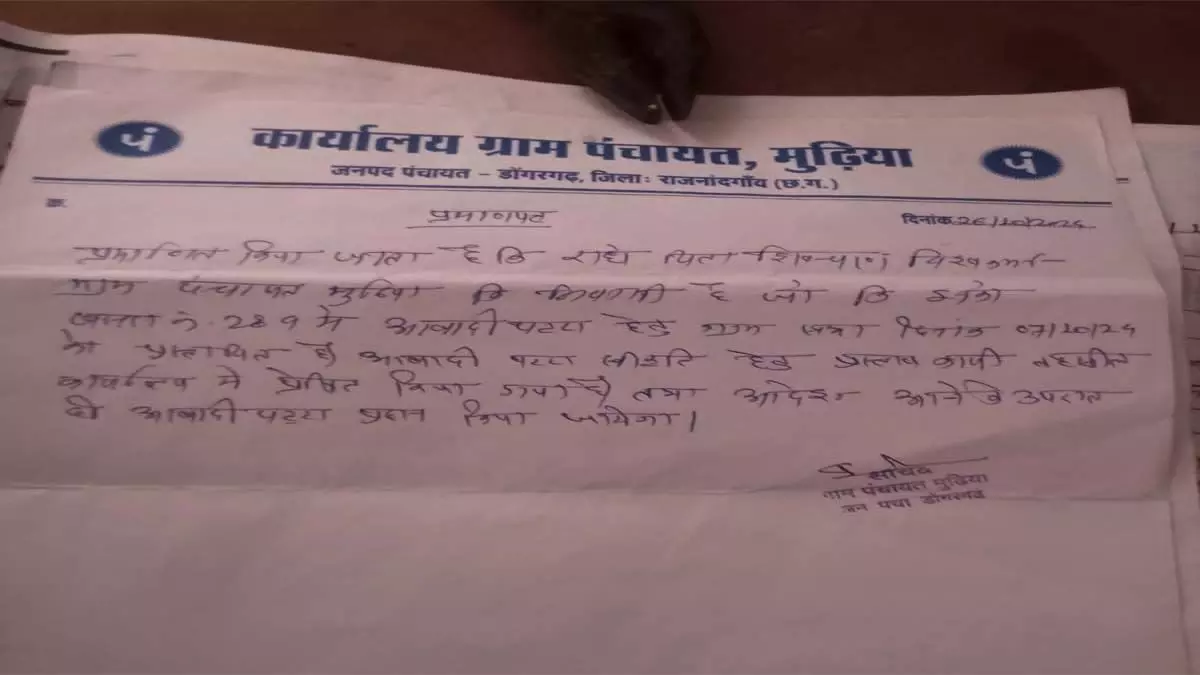 पं कार्यालय ग्राम पंचायत, मुढ़िया पं
जनपद पंचायत - डोंगरगढ़, जिलाः राजनांदगाँव (छ.ग.)
क्र. प्रमाणपत्र दिनांक 26/10/2024
प्रमाणित किया जाता है कि राधे पिता विश्वकर्मा
ग्राम पंचायत मुढ़िया कि निवासी है जो कि इनको
खसरा नं. 289 में आबादी पट्टा हेतु ग्राम सभा दिनांक 07/10/24
को प्रस्तावित है। आबादी पट्टा स्वीकृति हेतु प्रस्ताव कापी तहसील
कार्यालय में प्रेषित किया गया है। तथा आदेश आने के उपरांत
ही आबादी पट्टा प्रदान किया जायेगा।
सचिव
ग्राम पंचायत मुढ़िया
डोंगरगढ़